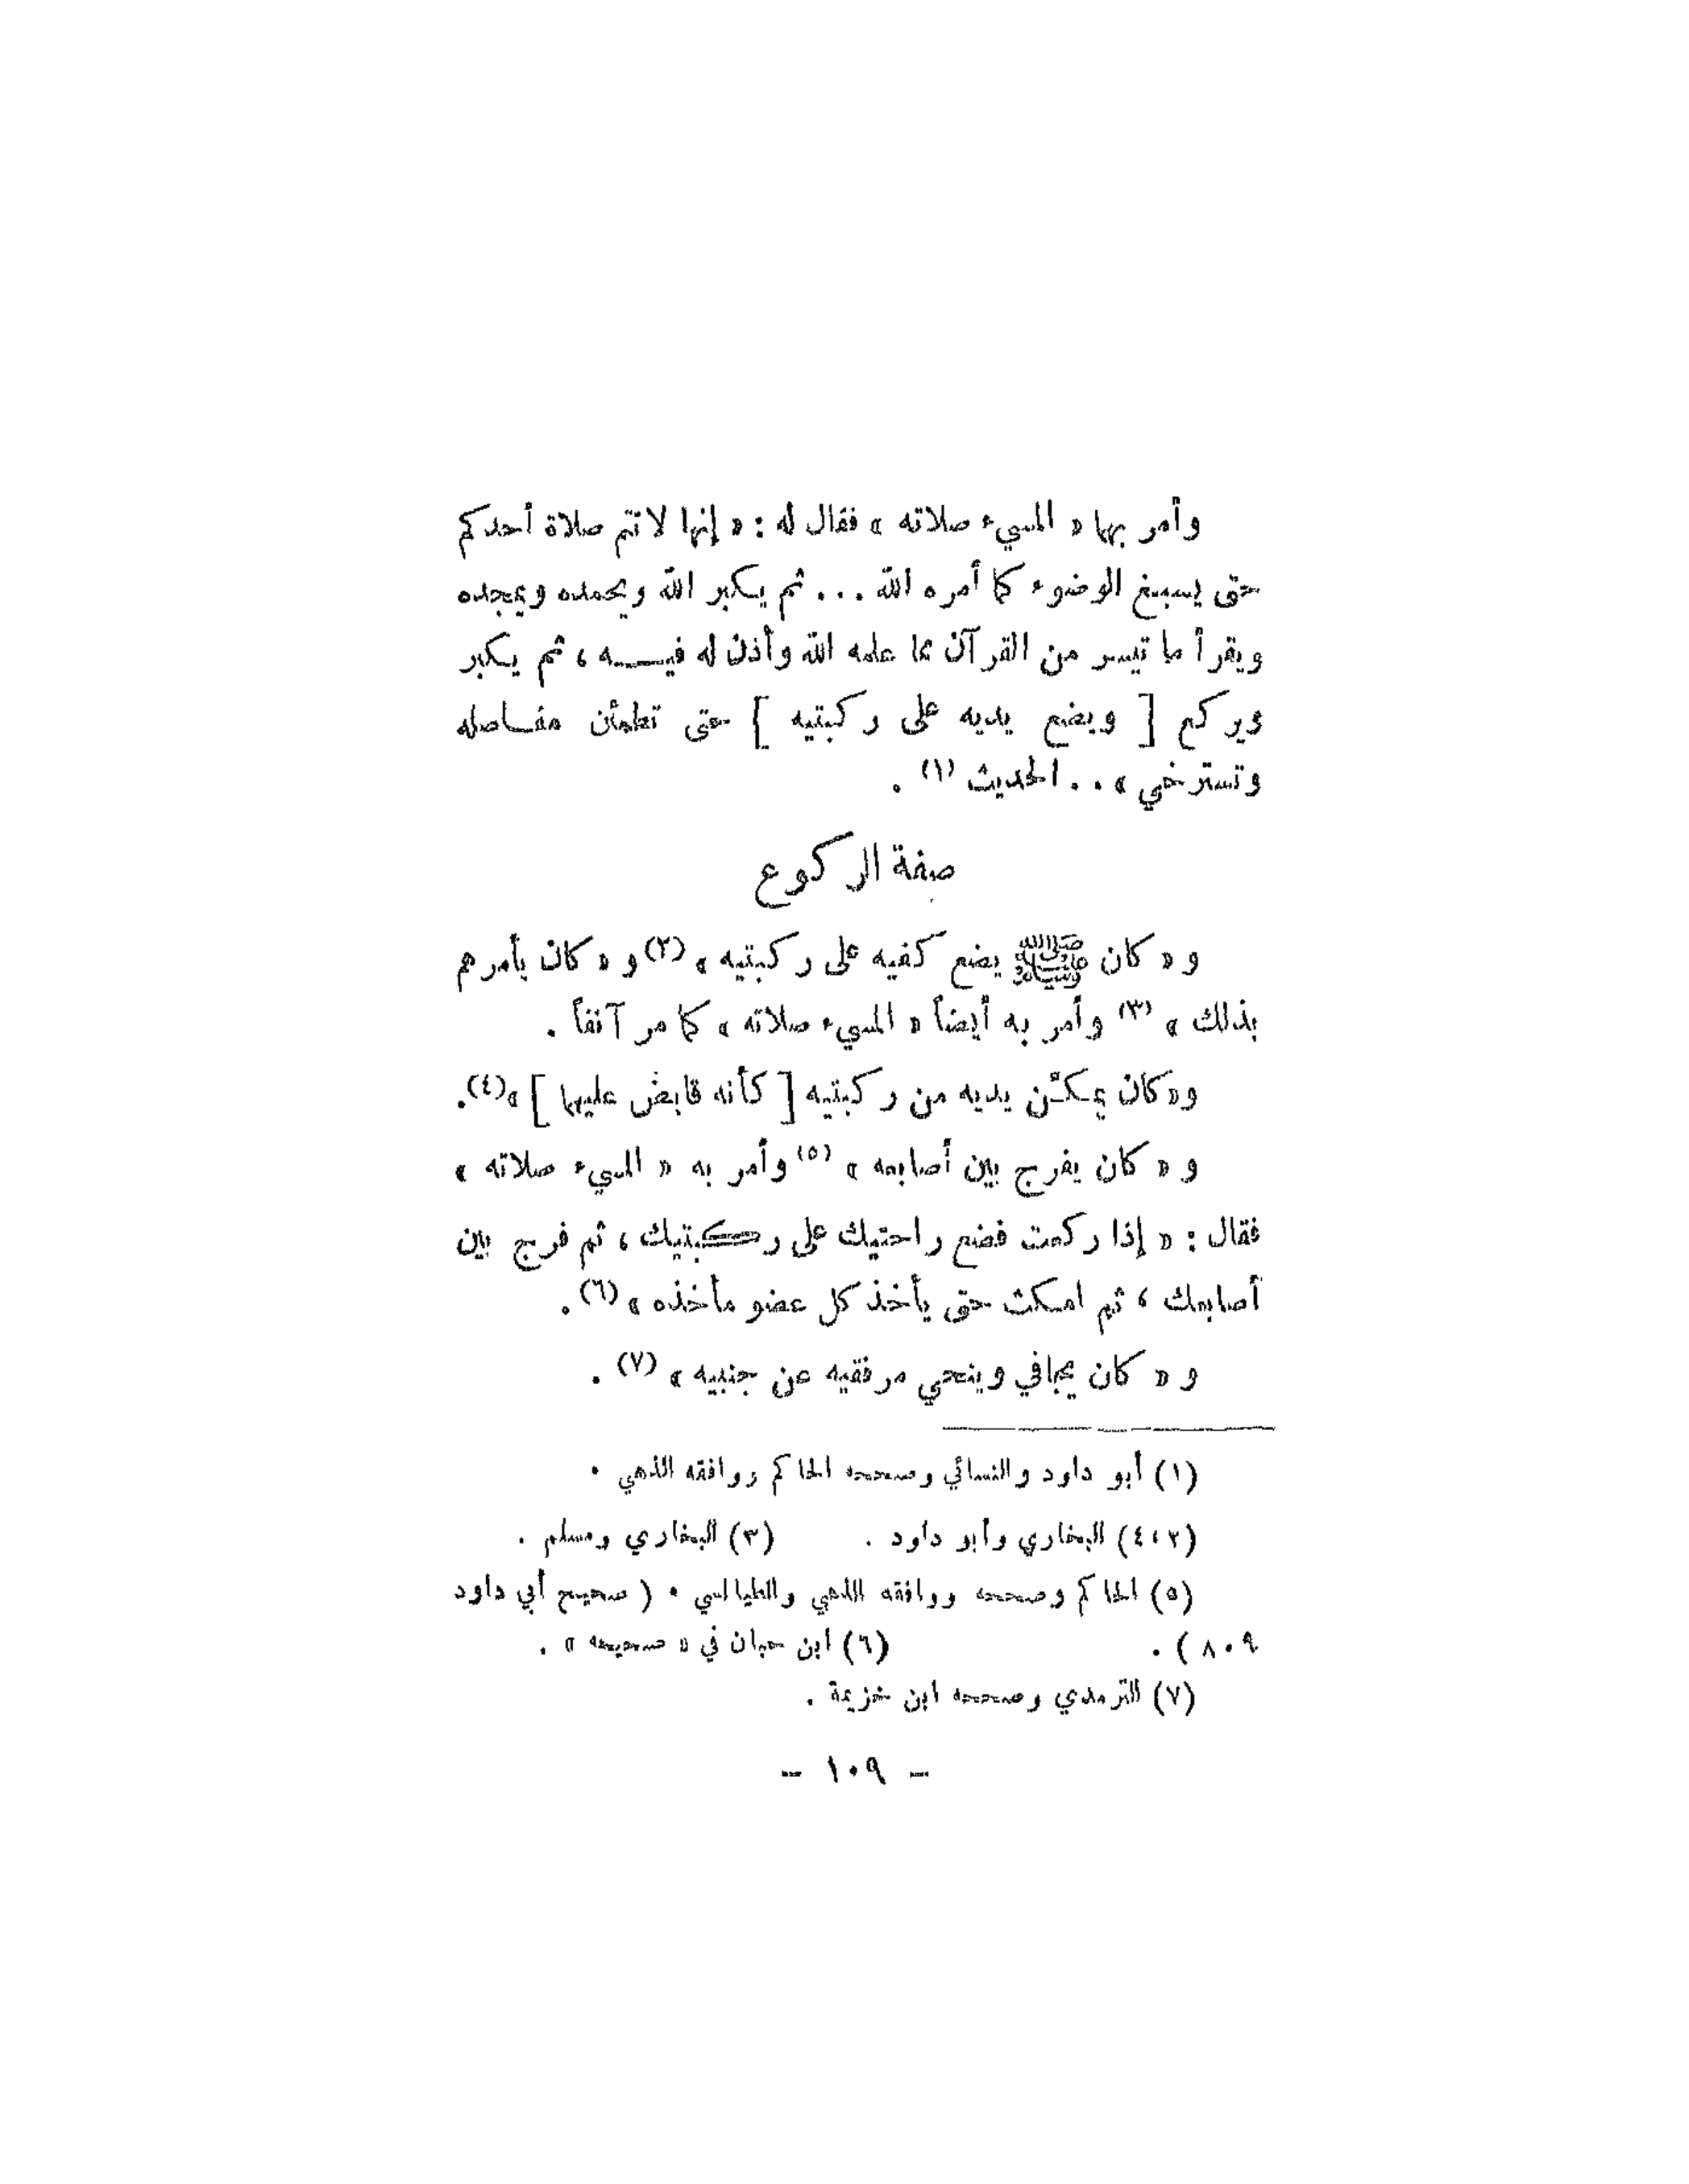 وأمر بها « المسيء صلاته » فقال له : « إنها لا تتم صلاة أحدكم
حتى يسبغ الوضوء كما أمره الله ... ثم يكبر الله ويحمده ويمجده
ويقرأ ما تيسر من القرآن مما علمه الله وأذن له فيـــه ، ثم يكبر
ويركع [ ويضع يديه على ركبتيه ] حتى تطمئن مفـاصله
وتسترخي » . . . الحديث (١) .
صفة الركوع
و « كان ﷺ يضع كفيه على ركبتيه » (٢) و « كان يأمرهم
بذلك » (٣) وأمر به أيضاً « المسيء صلاته » كما مر آنفاً .
و « كان يمكّن يديه من ركبتيه [ كأنه قابض عليهما ] » (٤) .
و « كان يفرج بين أصابعه » (٥) وأمر به « المسيء صلاته »
فقال : « إذا ركعت فضع راحتيك على ركبتيك ، ثم فرج بين
أصابعك ، ثم امكث حتى يأخذ كل عضو مأخذه » (٦) .
و « كان يجافي وينحي مرفقيه عن جنبيه » (٧) .
(١) أبو داود والنسائي وصححه الحاكم ووافقه الذهبي .
(٤،٢) البخاري وأبو داود . (٣) البخاري ومسلم .
(٥) الحاكم وصححه ووافقه الذهبي والطيالسي . ( صحيح أبي داود
٨٠٩ ) . (٦) ابن حبان في « صحيحه » .
(٧) الترمذي وصححه ابن خزيمة .
- ١٠٩ -